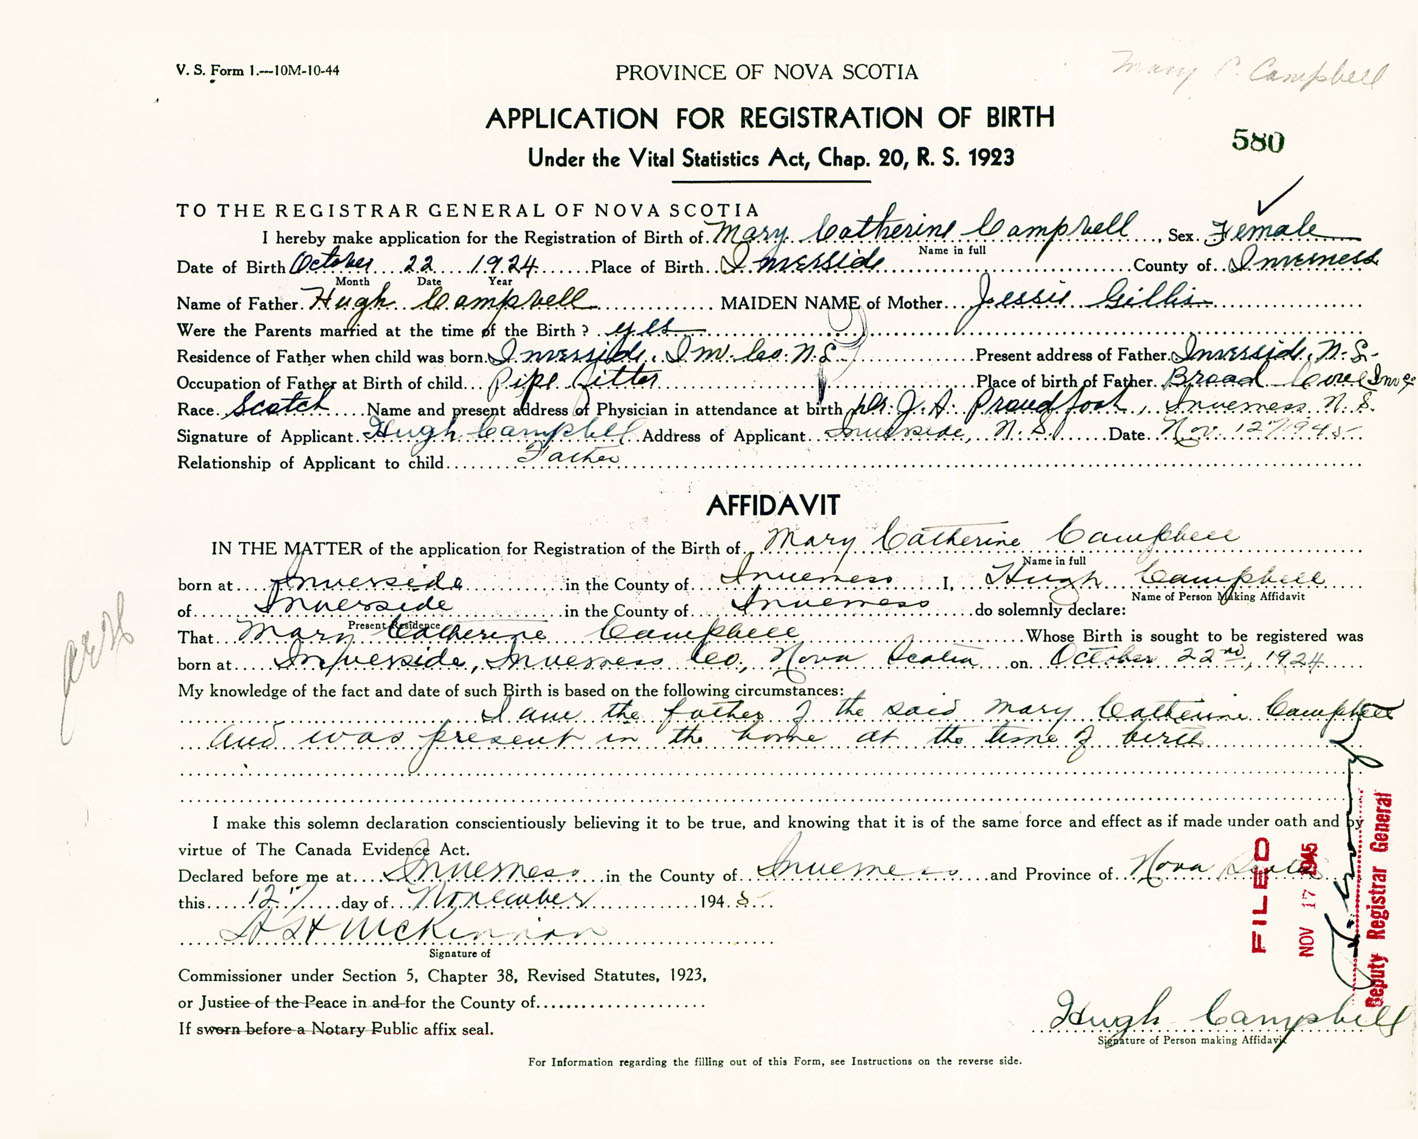 V. S. Form 1.—10M-10-44
PROVINCE OF NOVA SCOTIA
Mary C. Campbell
APPLICATION FOR REGISTRATION OF BIRTH
580
Under the Vital Statistics Act, Chap. 20, R. S. 1923
TO THE REGISTRAR GENERAL OF NOVA SCOTIA
I hereby make application for the Registration of Birth of Mary Catherine Campbell, Sex Female
Name in full
Date of Birth October 22 1924 Place of Birth Inverside County of Inverness
Month Date Year
Name of Father Hugh Campbell MAIDEN NAME of Mother Jessie Gillis
Were the Parents married at the time of the Birth? yes
Residence of Father when child was born Inverside, Inv. Co. N.S. Present address of Father Inverside, N.S.
Occupation of Father at Birth of child Pipe fitter Place of birth of Father Broad Cove Inv Co
Race Scotch Name and present address of Physician in attendance at birth Dr. J. A. Proudfoot, Inverness N.S.
Signature of Applicant Hugh Campbell Address of Applicant Inverside, N.S. Date Nov. 12 1945
Relationship of Applicant to child Father
AFFIDAVIT
IN THE MATTER of the application for Registration of the Birth of Mary Catherine Campbell
Name in full
born at Inverside in the County of Inverness I, Hugh Campbell
Name of Person Making Affidavit
of Inverside in the County of Inverness do solemnly declare:
Present Residence
That Mary Catherine Campbell Whose Birth is sought to be registered was
born at Inverside, Inverness Co, Nova Scotia on October 22nd, 1924
My knowledge of the fact and date of such Birth is based on the following circumstances:
I am the father of the said Mary Catherine Campbell
and was present in the home at the time of birth
I make this solemn declaration conscientiously believing it to be true, and knowing that it is of the same force and effect as if made under oath and by
virtue of The Canada Evidence Act.
Declared before me at Inverness in the County of Inverness and Province of Nova Scotia
this 12 day of November 1945
McKinnon
Signature of
Commissioner under Section 5, Chapter 38, Revised Statutes, 1923,
or Justice of the Peace in and for the County of
If sworn before a Notary Public affix seal.
Hugh Campbell
Signature of Person making Affidavit
For Information regarding the filling out of this Form, see Instructions on the reverse side.
FILED
NOV 17 1945
Deputy Registrar General